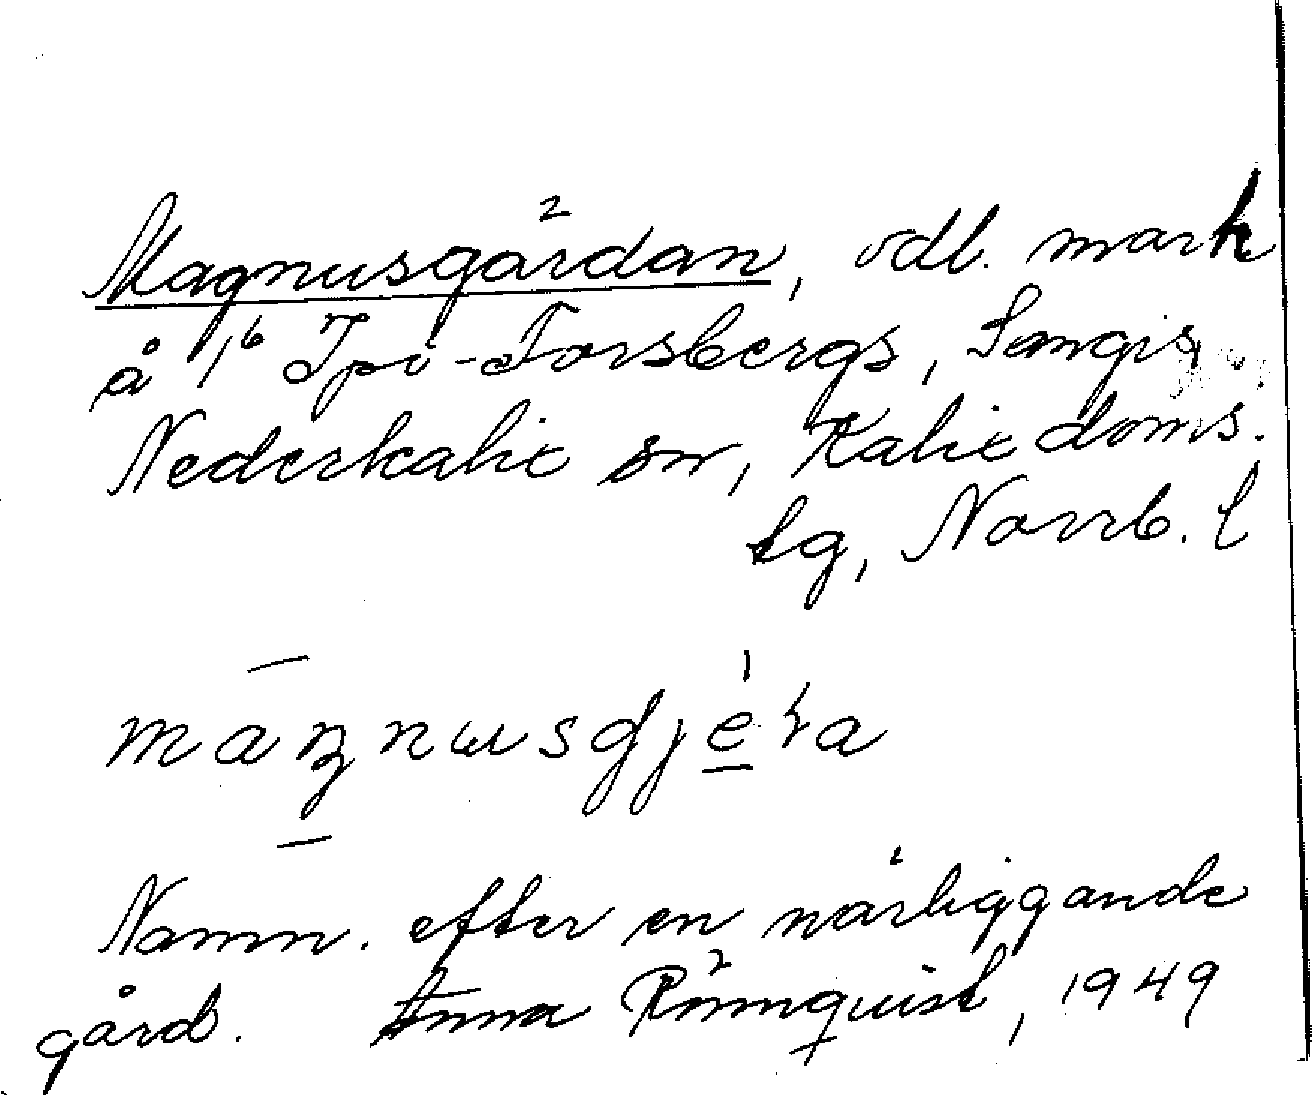 Magnusgärdan, odl. mark
å 1⁶ Ipi-Forsbergs, Sangis,
Nederkalix sn, Kalix doms.
tg, Norrb. l
Namn. efter en närliggande
gård. Anna Rönnquist, 1949